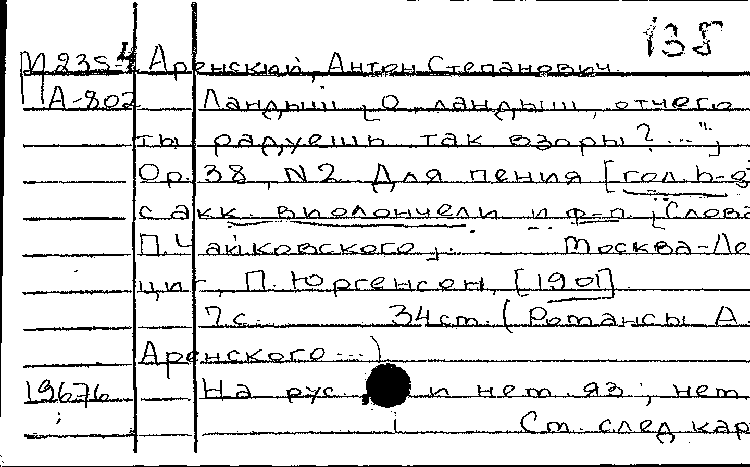 138
М 235-4 Аренский, Антон Степанович.
А-802 Ландыш „О, ландыш, отчего
ты радуешь так взоры?..."
Ор. 38, N2. Для пения [гол. h-g
с акк. виолончели и ф-п. [Слова
П. Чайковского]. Москва-Ле
циг, П. Юргенсон, [1901]
7 с. 34 cm. (Романсы А.
Аренского ...)
19676 На рус. и нем. яз., нем
См. след кар